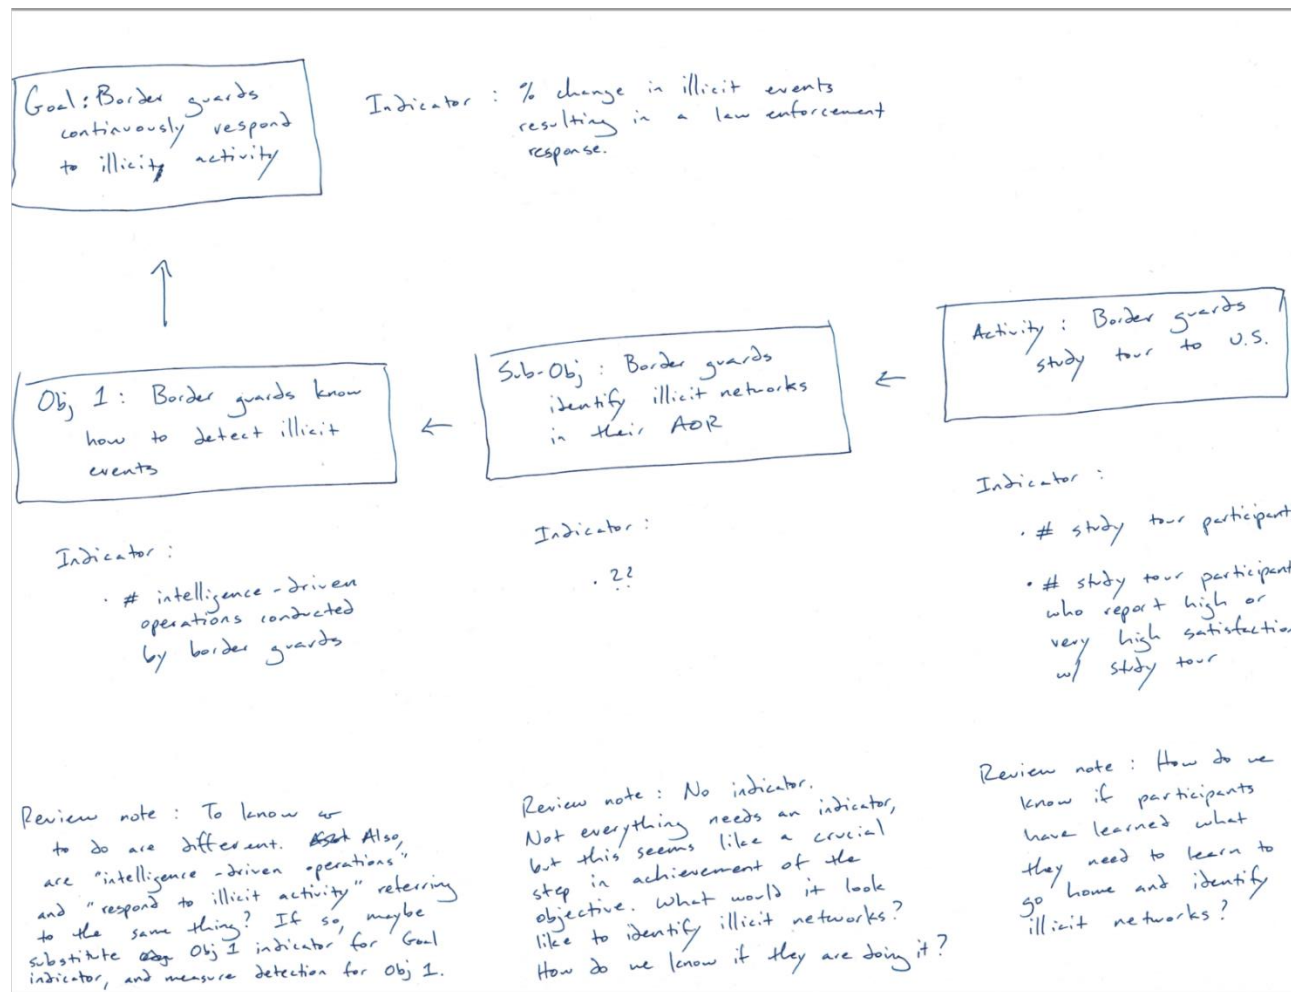 Goal: Border guards
continuously respond
to illicity activity
Indicator : % change in illicit events
resulting in a law enforcement
response.
Obj 1 : Border guards know
how to detect illicit
events
Sub-Obj : Border guards
identify illicit networks
in their AOR
Activity : Border guards
study tour to U.S.
Indicator :
· # intelligence-driven
operations conducted
by border guards
Indicator :
· ??
Indicator :
· # study tour participant
· # study tour participant
who report high or
very high satisfaction
w/ study tour
Review note : To know or
to do are different. Also,
are "intelligence-driven operations"
and "respond to illicit activity" referring
to the same thing? If so, maybe
substitute Obj 1 indicator for Goal
indicator, and measure detection for Obj 1.
Review note : No indicator.
Not everything needs an indicator,
but this seems like a crucial
step in achievement of the
objective. What would it look
like to identify illicit networks?
How do we know if they are doing it?
Review note : How do we
know if participants
have learned what
they need to learn to
go home and identify
illicit networks?